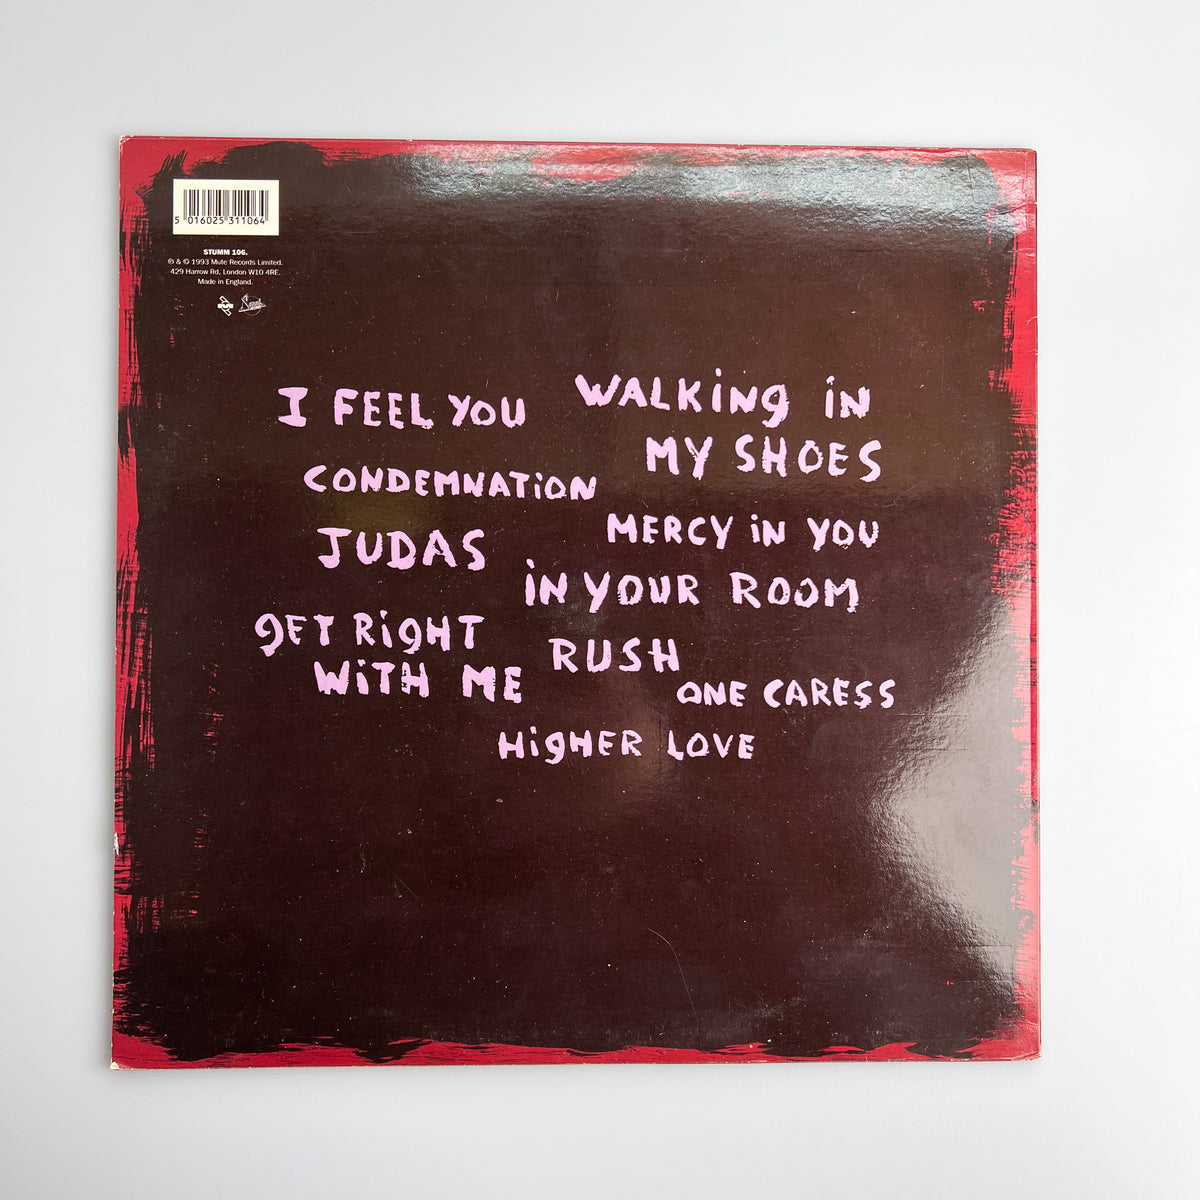 5 016025 311064
STUMM 106.
℗ & © 1993 Mute Records Limited.
429 Harrow Rd, London W10 4RE.
Made in England.
I FEEL YOU
WALKiNg iN
MY SHOES
CONDEMNATiON
MERCY iN YOU
JUDAS
iN YOUR ROOM
gET RigHT
WiTH ME
RUSH
ONE CARESS
HigHER LOVE